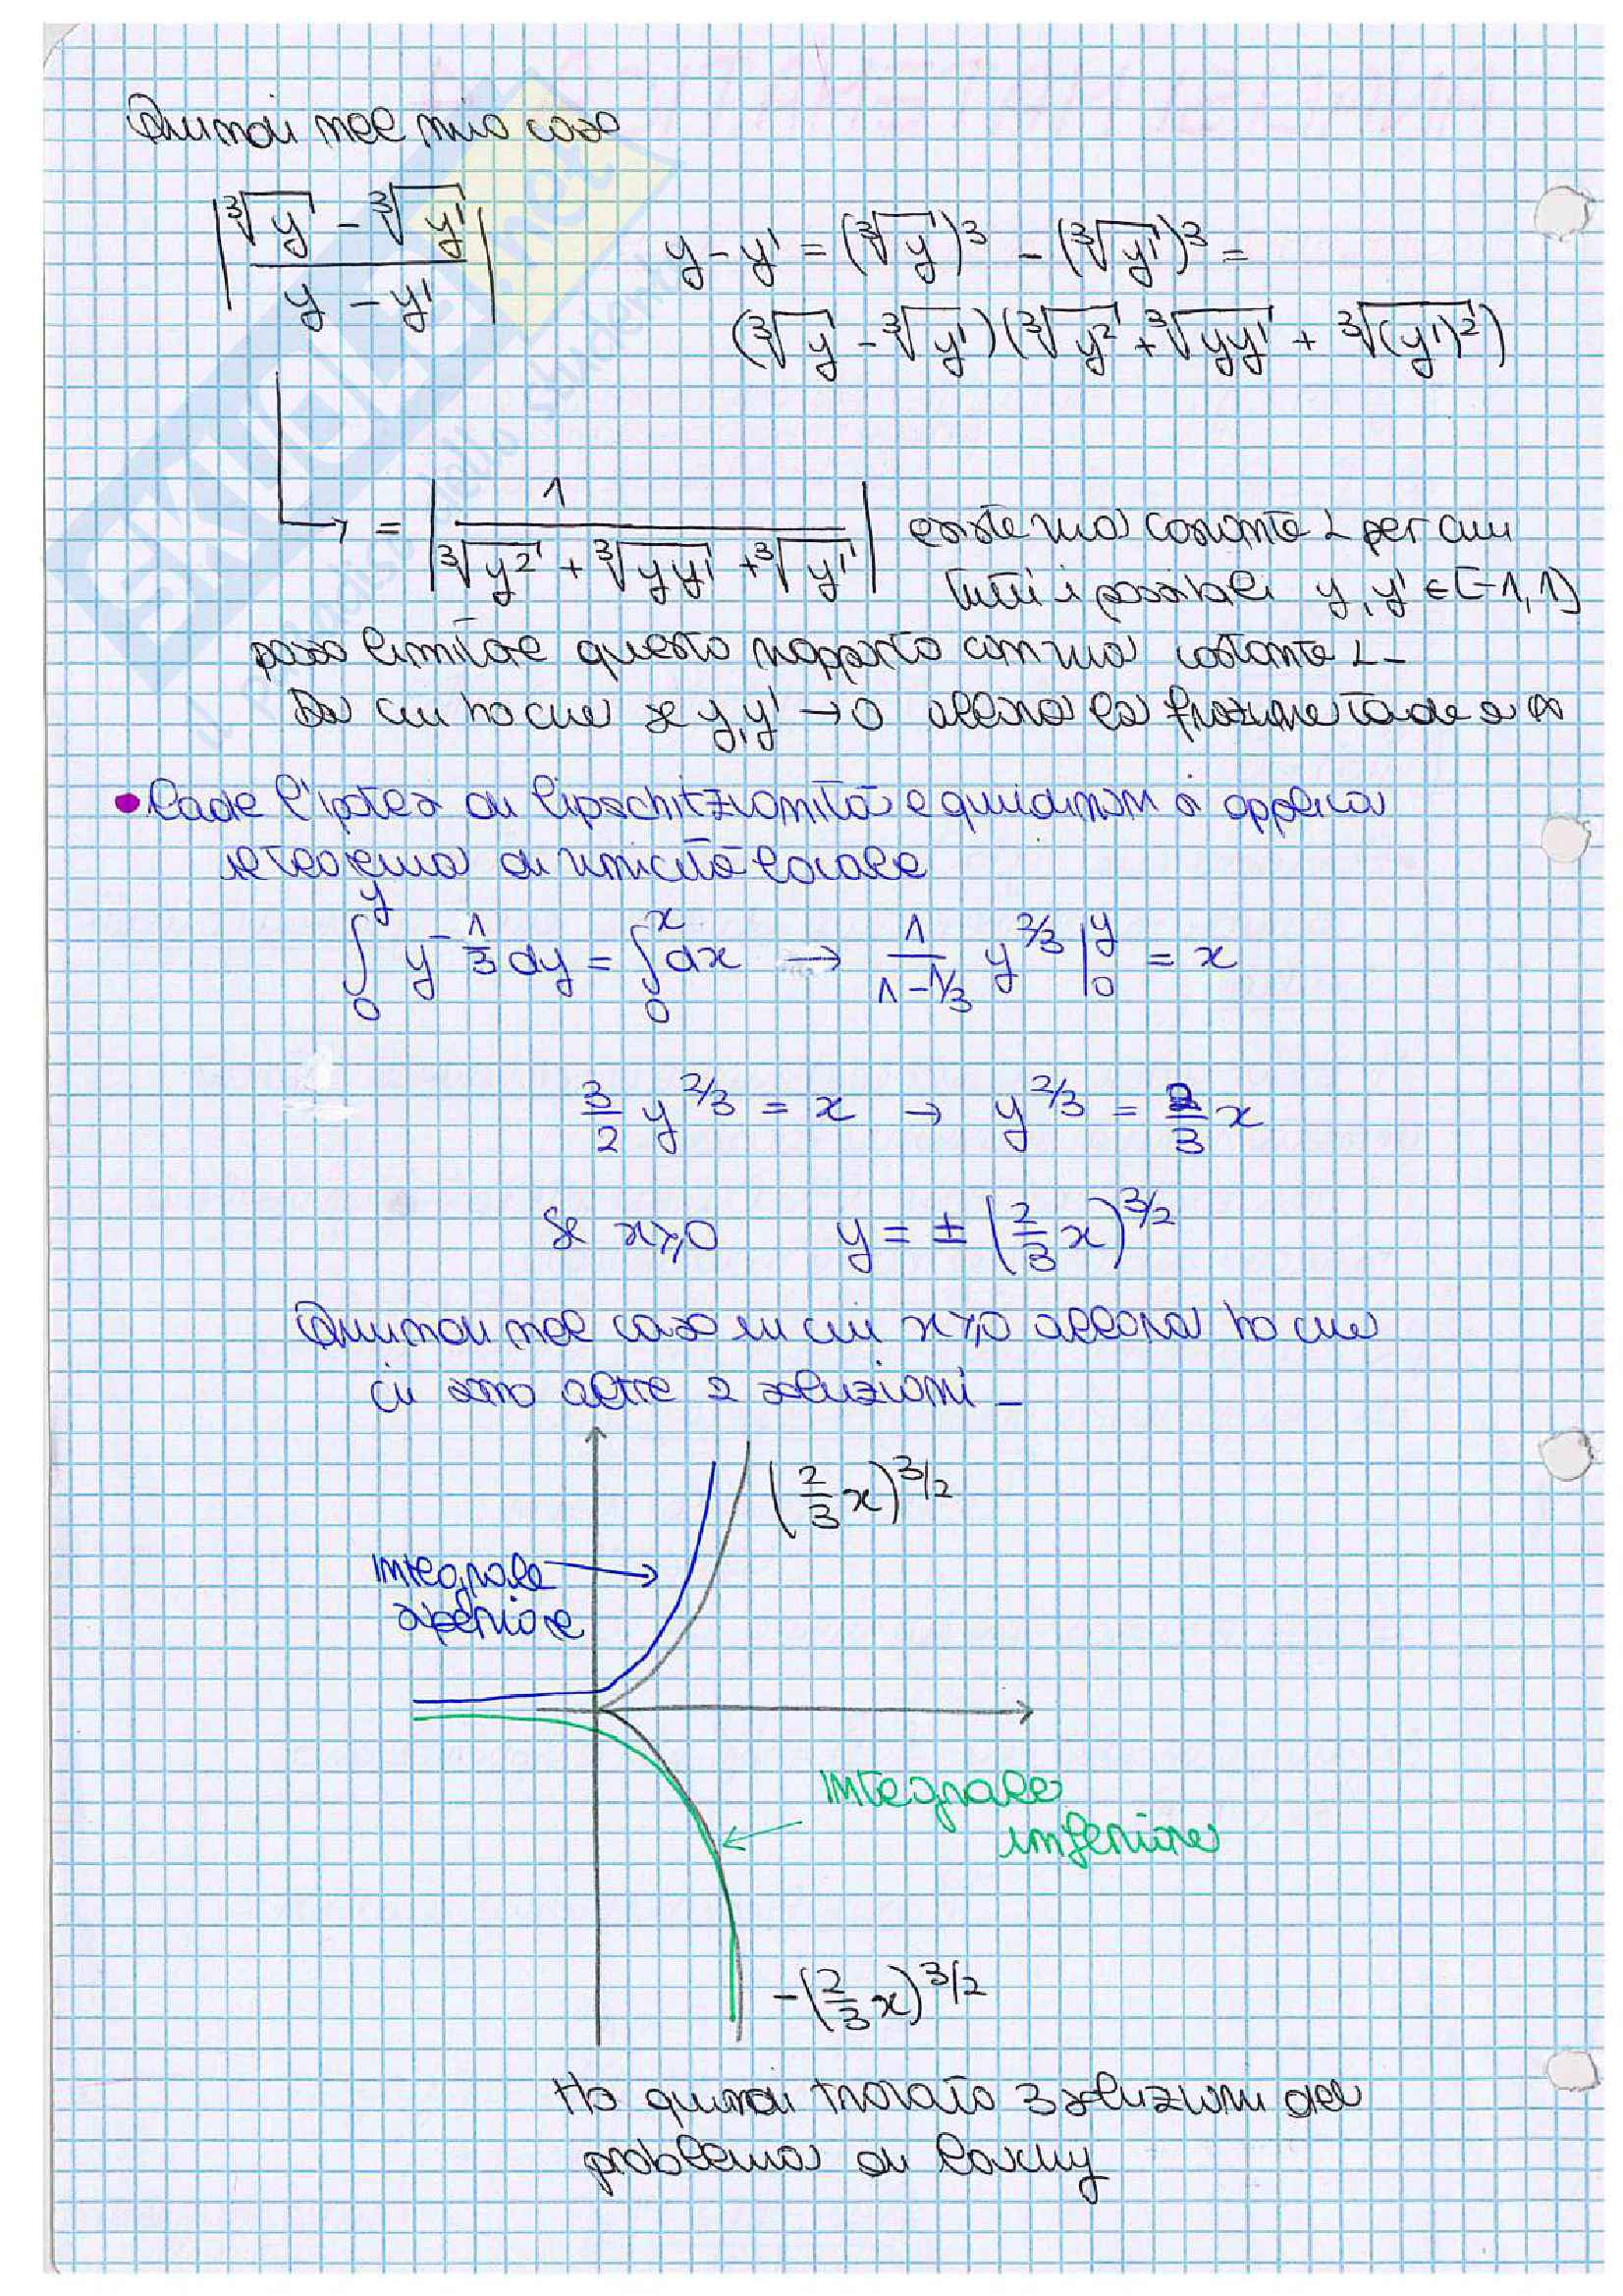 Quindi nel mio caso
|(∛y - ∛y')/(y - y')|   y - y' = (∛y)³ - (∛y')³ =
(∛y - ∛y')(∛y² + ∛yy' + ∛(y')²)
→ = |1/(∛y² + ∛yy' + ∛y')| esiste una costante L per cui
tutti i possibili y, y' ∈ [-1, 1]
posso limitare questo rapporto con una costante L -
Da cui ho che se y, y' → 0 allora la frazione tende a ∞
• Cade l'ipotesi di lipschitzianità e quindi non si applica
il teorema di unicità locale
∫₀^y y^(-1/3) dy = ∫₀^x dx → 1/(1-1/3) y^(2/3) |₀^y = x
3/2 y^(2/3) = x → y^(2/3) = 2/3 x
Se x ≥ 0   y = ± (2/3 x)^(3/2)
Quindi nel caso in cui x ≥ 0 allora ho che
ci sono altre 2 soluzioni -
(2/3 x)^(3/2)
integrale
superiore
integrale
inferiore
-(2/3 x)^(3/2)
Ho quindi trovato 3 soluzioni del
problema di Cauchy
SKUOLA.net
il paradiso dello studente